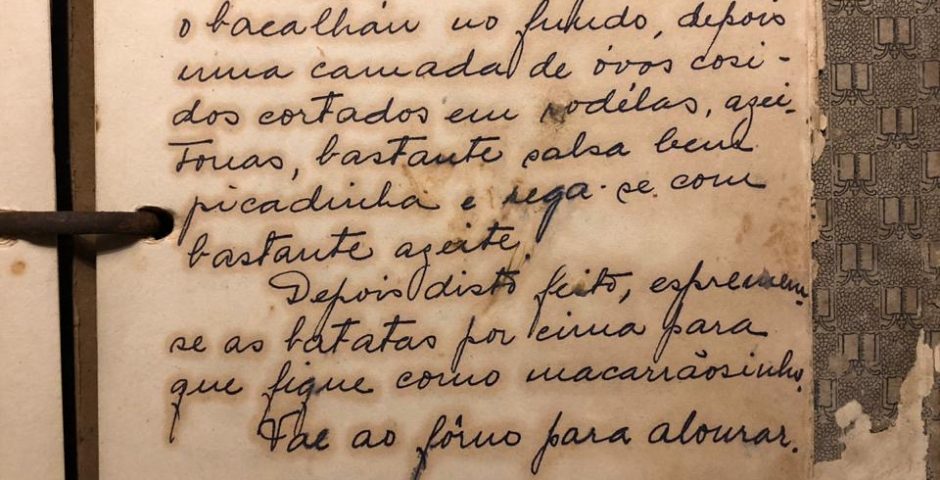 o bacalháu no fundo, depois
uma camada de óvos cosi-
dos cortados em rodélas, azei-
tonas, bastante salsa bem
picadinha e rega-se com
bastante azeite.
Depois disto feito, espremem-
se as batatas por cima para
que fique como macarrãosinho.
Vae ao fôrno para alourar.